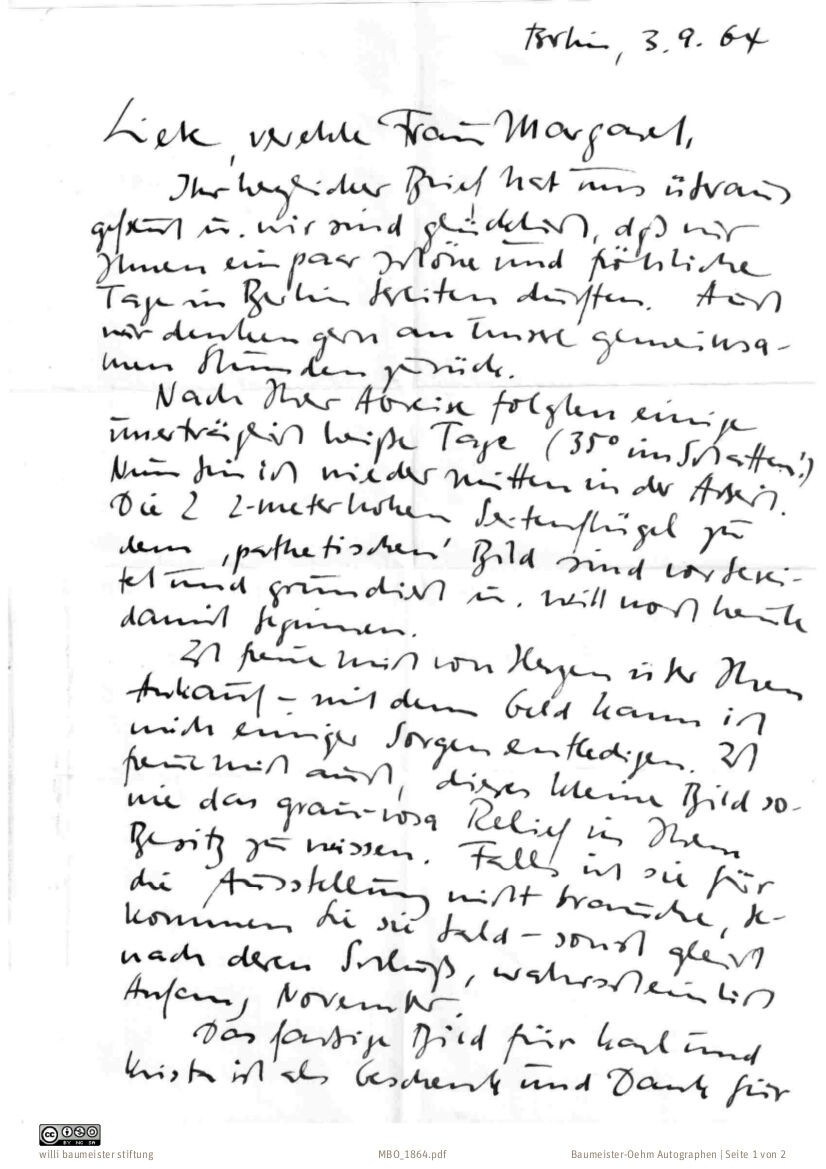 Berlin, 3.9.64
Liebe, verehrte Frau Margaret,
Ihr herzlicher Brief hat uns überaus
gefreut u. wir sind glücklich, daß wir
Ihnen ein paar schöne und fröhliche
Tage in Berlin bereiten durften. Auch
wir denken gern an unsre gemeinsa-
men Stunden zurück.
Nach Ihrer Abreise folgten einige
unerträglich heiße Tage (35° im Schatten!)
Nun bin ich wieder mitten in der Arbeit.
Die 2 2-meterhohen Seitenflügel zu
dem 'pathetischen' Bild sind vorberei-
tet und grundiert u. will noch heute
damit beginnen.
Ich freue mich von Herzen über Ihren
Ankauf – mit dem Geld kann ich
mich einiger Sorgen entledigen. Ich
freue mich auch, dieses kleine Bild so-
wie das grau-rosa Relief in Ihrem
Besitz zu wissen. Falls ich sie für
die Ausstellung nicht brauche, be-
kommen Sie sie bald – sonst gleich
nach deren Schluß, wahrscheinlich
Anfang November.
Das farbige Bild für Karl und
Krista ist als Geschenk und Dank für
CC BY NC SA
willi baumeister stiftung
MBO_1864.pdf
Baumeister-Oehm Autographen | Seite 1 von 2